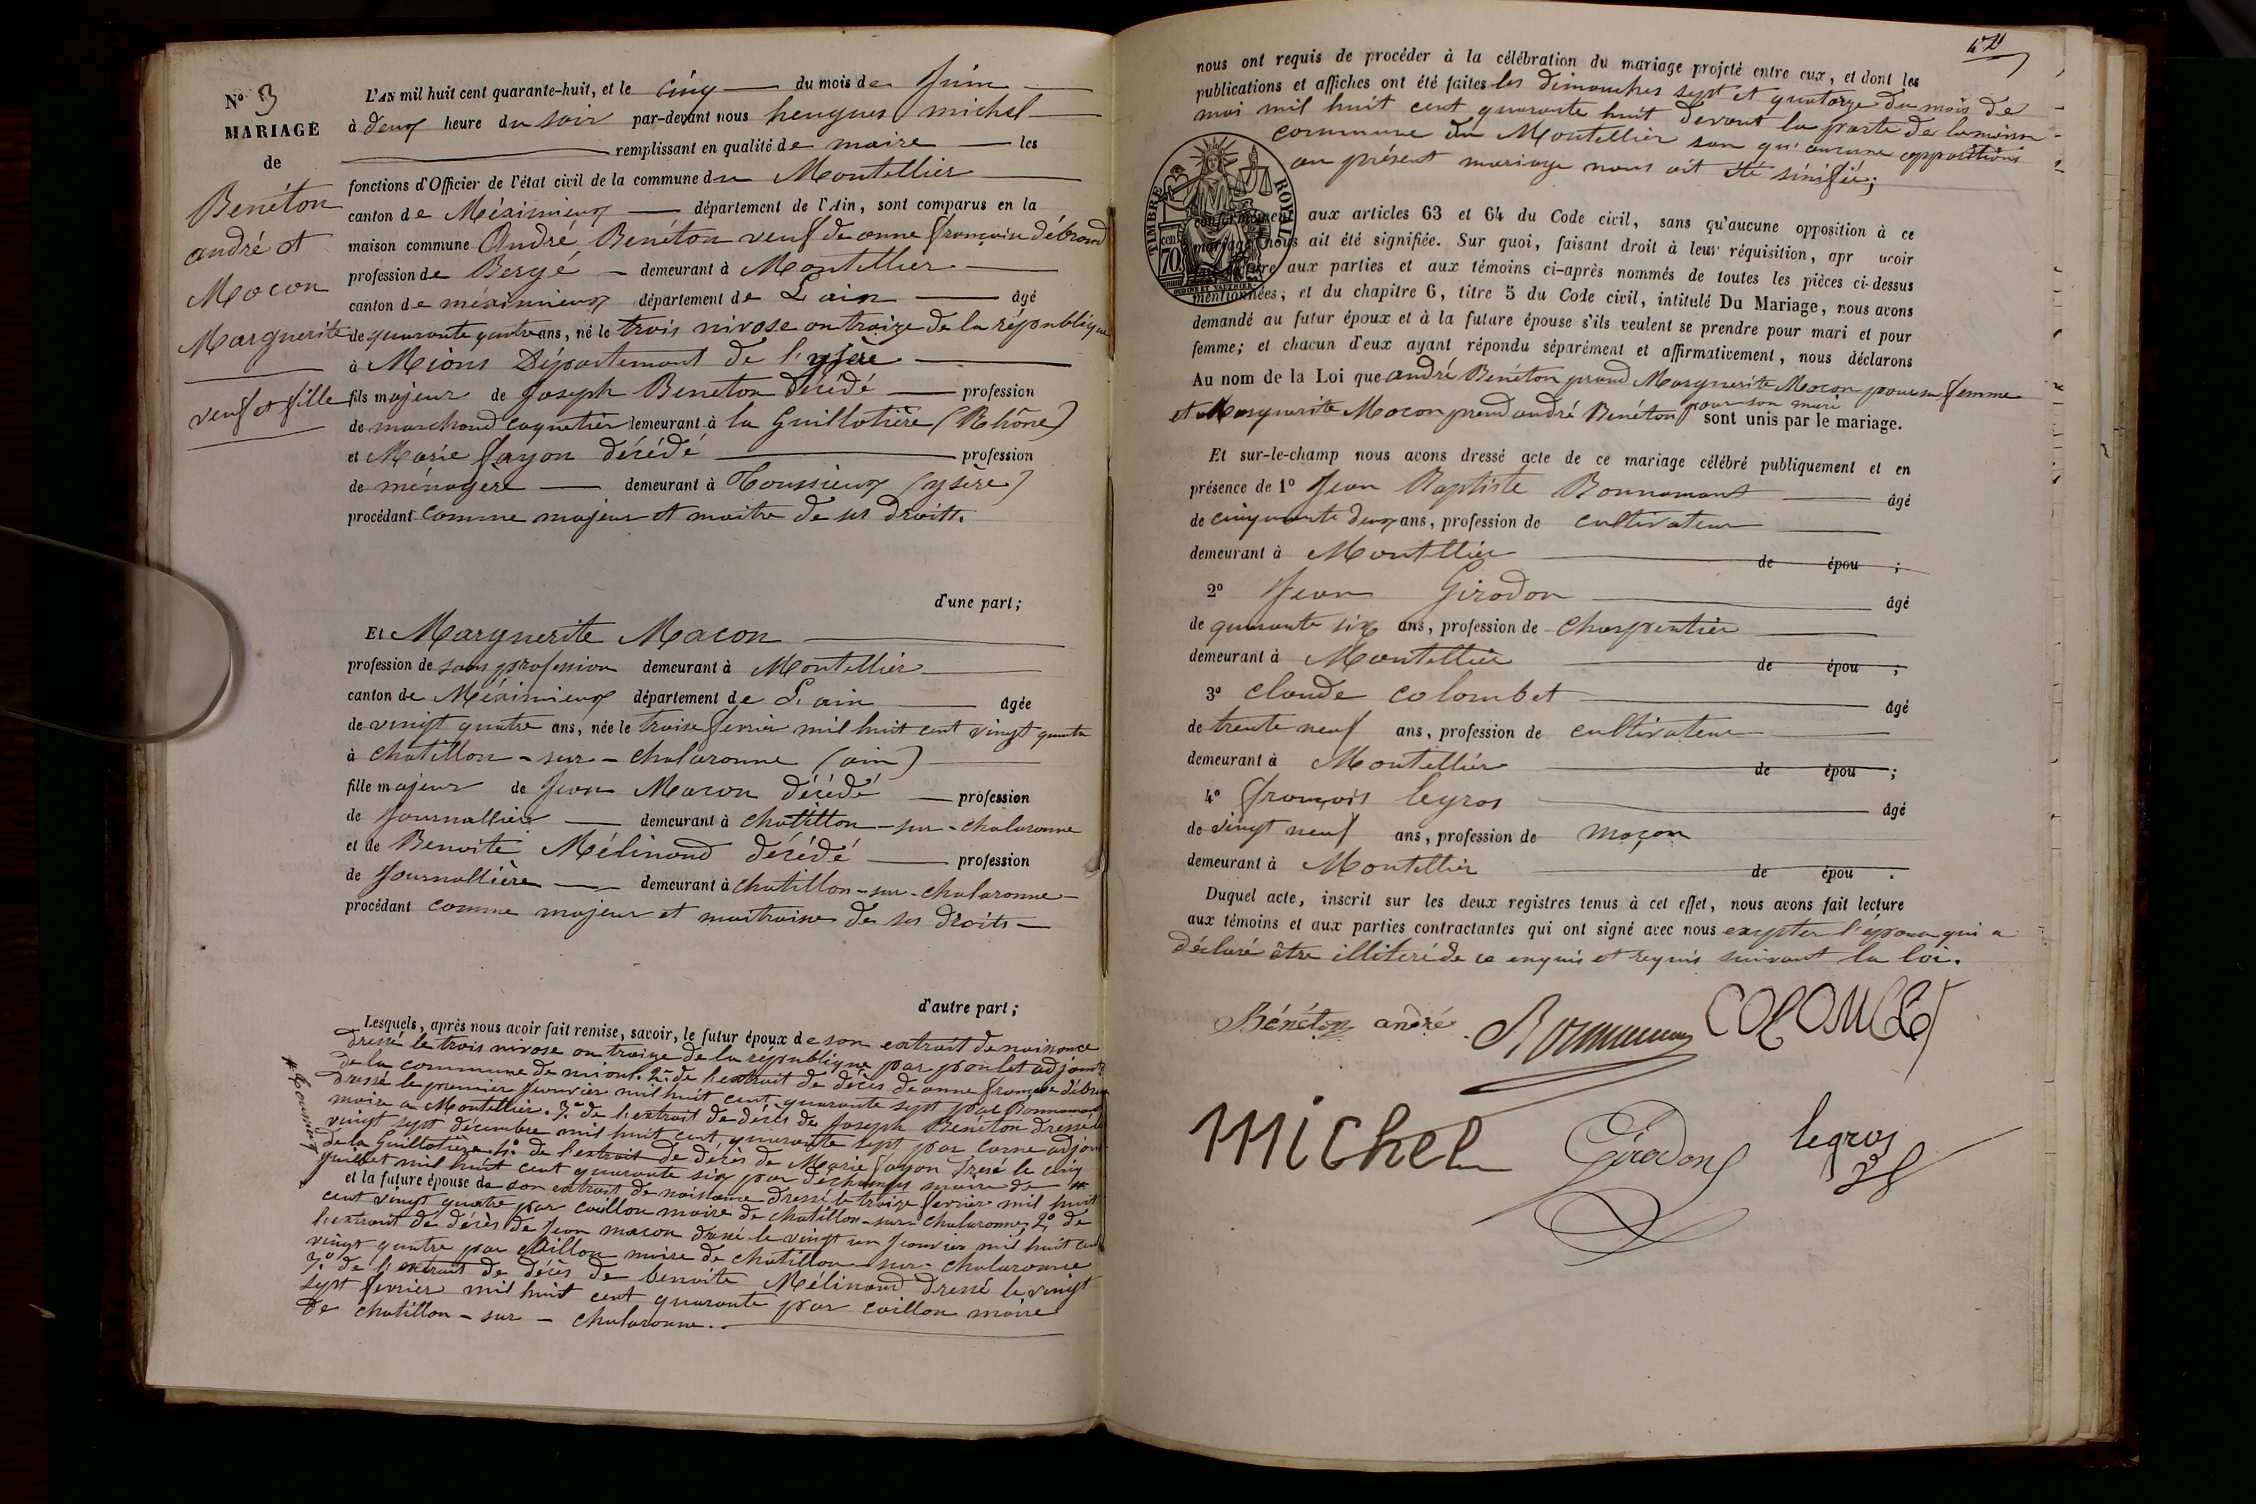 N° 3
MARIAGE
de
Benéton
andré et
Mocon
Marguerite
veuf et fille
L'AN mil huit cent quarante-huit, et le cinq du mois de Juin
à deux heure du soir par-devant nous hengues michel
remplissant en qualité de maire les
fonctions d'Officier de l'état civil de la commune du Montellier
canton de Méximieux département de l'Ain, sont comparus en la
maison commune André Benéton veuf de anne françoise débrand
profession de Bergé demeurant à Montellier
canton de méximieux département de L'ain âgé
de quarante quatre ans, né le trois nivose an traize de la république
à Mions Département de l'ysère
fils majeur de Joseph Beneton décédé profession
de marchand coquetier demeurant à la Guillotière (Rhône)
et Marie fayon décédé profession
de ménagere demeurant à Toussieux (ysere)
procédant comme majeur et maitre de ses droits.
d'une part;
Et Marguerite Macon
profession de sans profession demeurant à Montellier
canton de Méximieux département de L'ain âgée
de vingt quatre ans, née le traise fevrier mil huit cent vingt quatre
à chatillon-sur-chalaronne (ain)
fille majeur de Jean Macon décédé profession
de Journallier demeurant à chatillon-sur-chalaronne
et de Benoite Mélinand décédé profession
de Journallière demeurant à chatillon-sur-chalaronne
procédant comme majeur et maitraise de ses droits
d'autre part;
Lesquels, après nous avoir fait remise, savoir, le futur époux de son extrait de naissance
dressé le trois nivose an traize de la république par poulet adjoint
de la commune de mions. 2° de l'extrait de décès de anne françoise débrand
dressé le premier Janvier mil huit cent quarante sept par Bonnamant
maire a Montellier. 3° de l'extrait de décès de Joseph Benéton dressé le
vingt sept décembre mil huit cent quarante sept par Corne adjoint
de la Guillotière. 4° de l'extrait de décès de Marie fayon dressé le cinq
Juillet mil huit cent quarante six par déchamps maire de
Toussieux
et la future épouse de son extrait de naissance dressé le traize fevrier mil huit
cent vingt quatre par caillon maire de chatillon-sur-chalaronne; 2° de
l'extrait de décès de Jean macon dressé le vingt un Janvier mil huit cent
vingt quatre par caillon maire de chatillon-sur-chalaronne
3° de l'extrait de décès de benoite Mélinand dressé le vingt
sept fevrier mil huit cent quarante par caillon maire
de chatillon-sur-chalaronne.
nous ont requis de procéder à la célébration du mariage projeté entre eux, et dont les
publications et affiches ont été faites les dimanches sept et quatorze du mois de
mai mil huit cent quarante huit devant la porte de la maison
commune du Montellier san qu'aucune oppositions
au présent mariage nous ait été sinifié;
TIMBRE ROYAL
70
conformément aux articles 63 et 64 du Code civil, sans qu'aucune opposition à ce
mariage nous ait été signifiée. Sur quoi, faisant droit à leur réquisition, apr avoir
aux parties et aux témoins ci-après nommés de toutes les pièces ci-dessus
mentionnées; et du chapitre 6, titre 5 du Code civil, intitulé Du Mariage, nous avons
demandé au futur époux et à la future épouse s'ils veulent se prendre pour mari et pour
femme; et chacun d'eux ayant répondu séparément et affirmativement, nous déclarons
Au nom de la Loi que andré Benéton prend Marguerite Macon pour sa femme
et Marguerite Macon prend andré Benéton pour son mari sont unis par le mariage.
Et sur-le-champ nous avons dressé acte de ce mariage célébré publiquement et en
présence de 1° Jean Baptiste Bonnamant âgé
de cinquante deux ans, profession de cultivateur
demeurant à Montellier de épou ;
2° Jean Girodon âgé
de quarante six ans, profession de charpentier
demeurant à Montellier de épou ;
3° claude colombet âgé
de trente neuf ans, profession de cultivateur
demeurant à Montellier de épou ;
4° françois legros âgé
de vingt neuf ans, profession de maçon
demeurant à Montellier de épou .
Duquel acte, inscrit sur les deux registres tenus à cet effet, nous avons fait lecture
aux témoins et aux parties contractantes qui ont signé avec nous exepter l'épouse qui a
déclaré être illiteré de ce enquis et requis suivant la loi.
Bénéton andré
COLOMBET
Michel
Girodon
legros